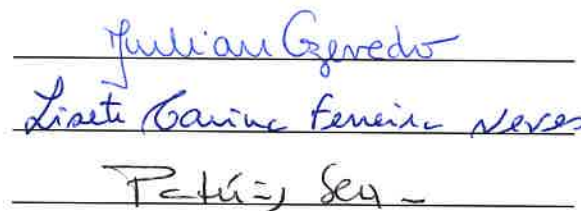 Julian Azevedo
Lisete Carina Ferreira Neves
Patrícia